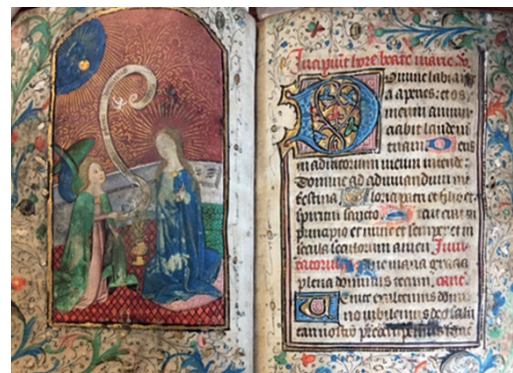 Incipiut hore beate marie v̄
Domine labia m
ea apries: et os
meum annun
ciabit laudem
tuam. Deus
in adiutorium meum intende:
Domine ad adiuvandum me
festina Gloria patri et filio et
spiritui sancto Sicut erat in
principio et nunc et semper et in
secula seculorum amen. Invi
tatorium Ave maria gracia
plena dominus tecum.
Venite exultemus domi
no iubilemus deo salu
tari nostro preoccupemus